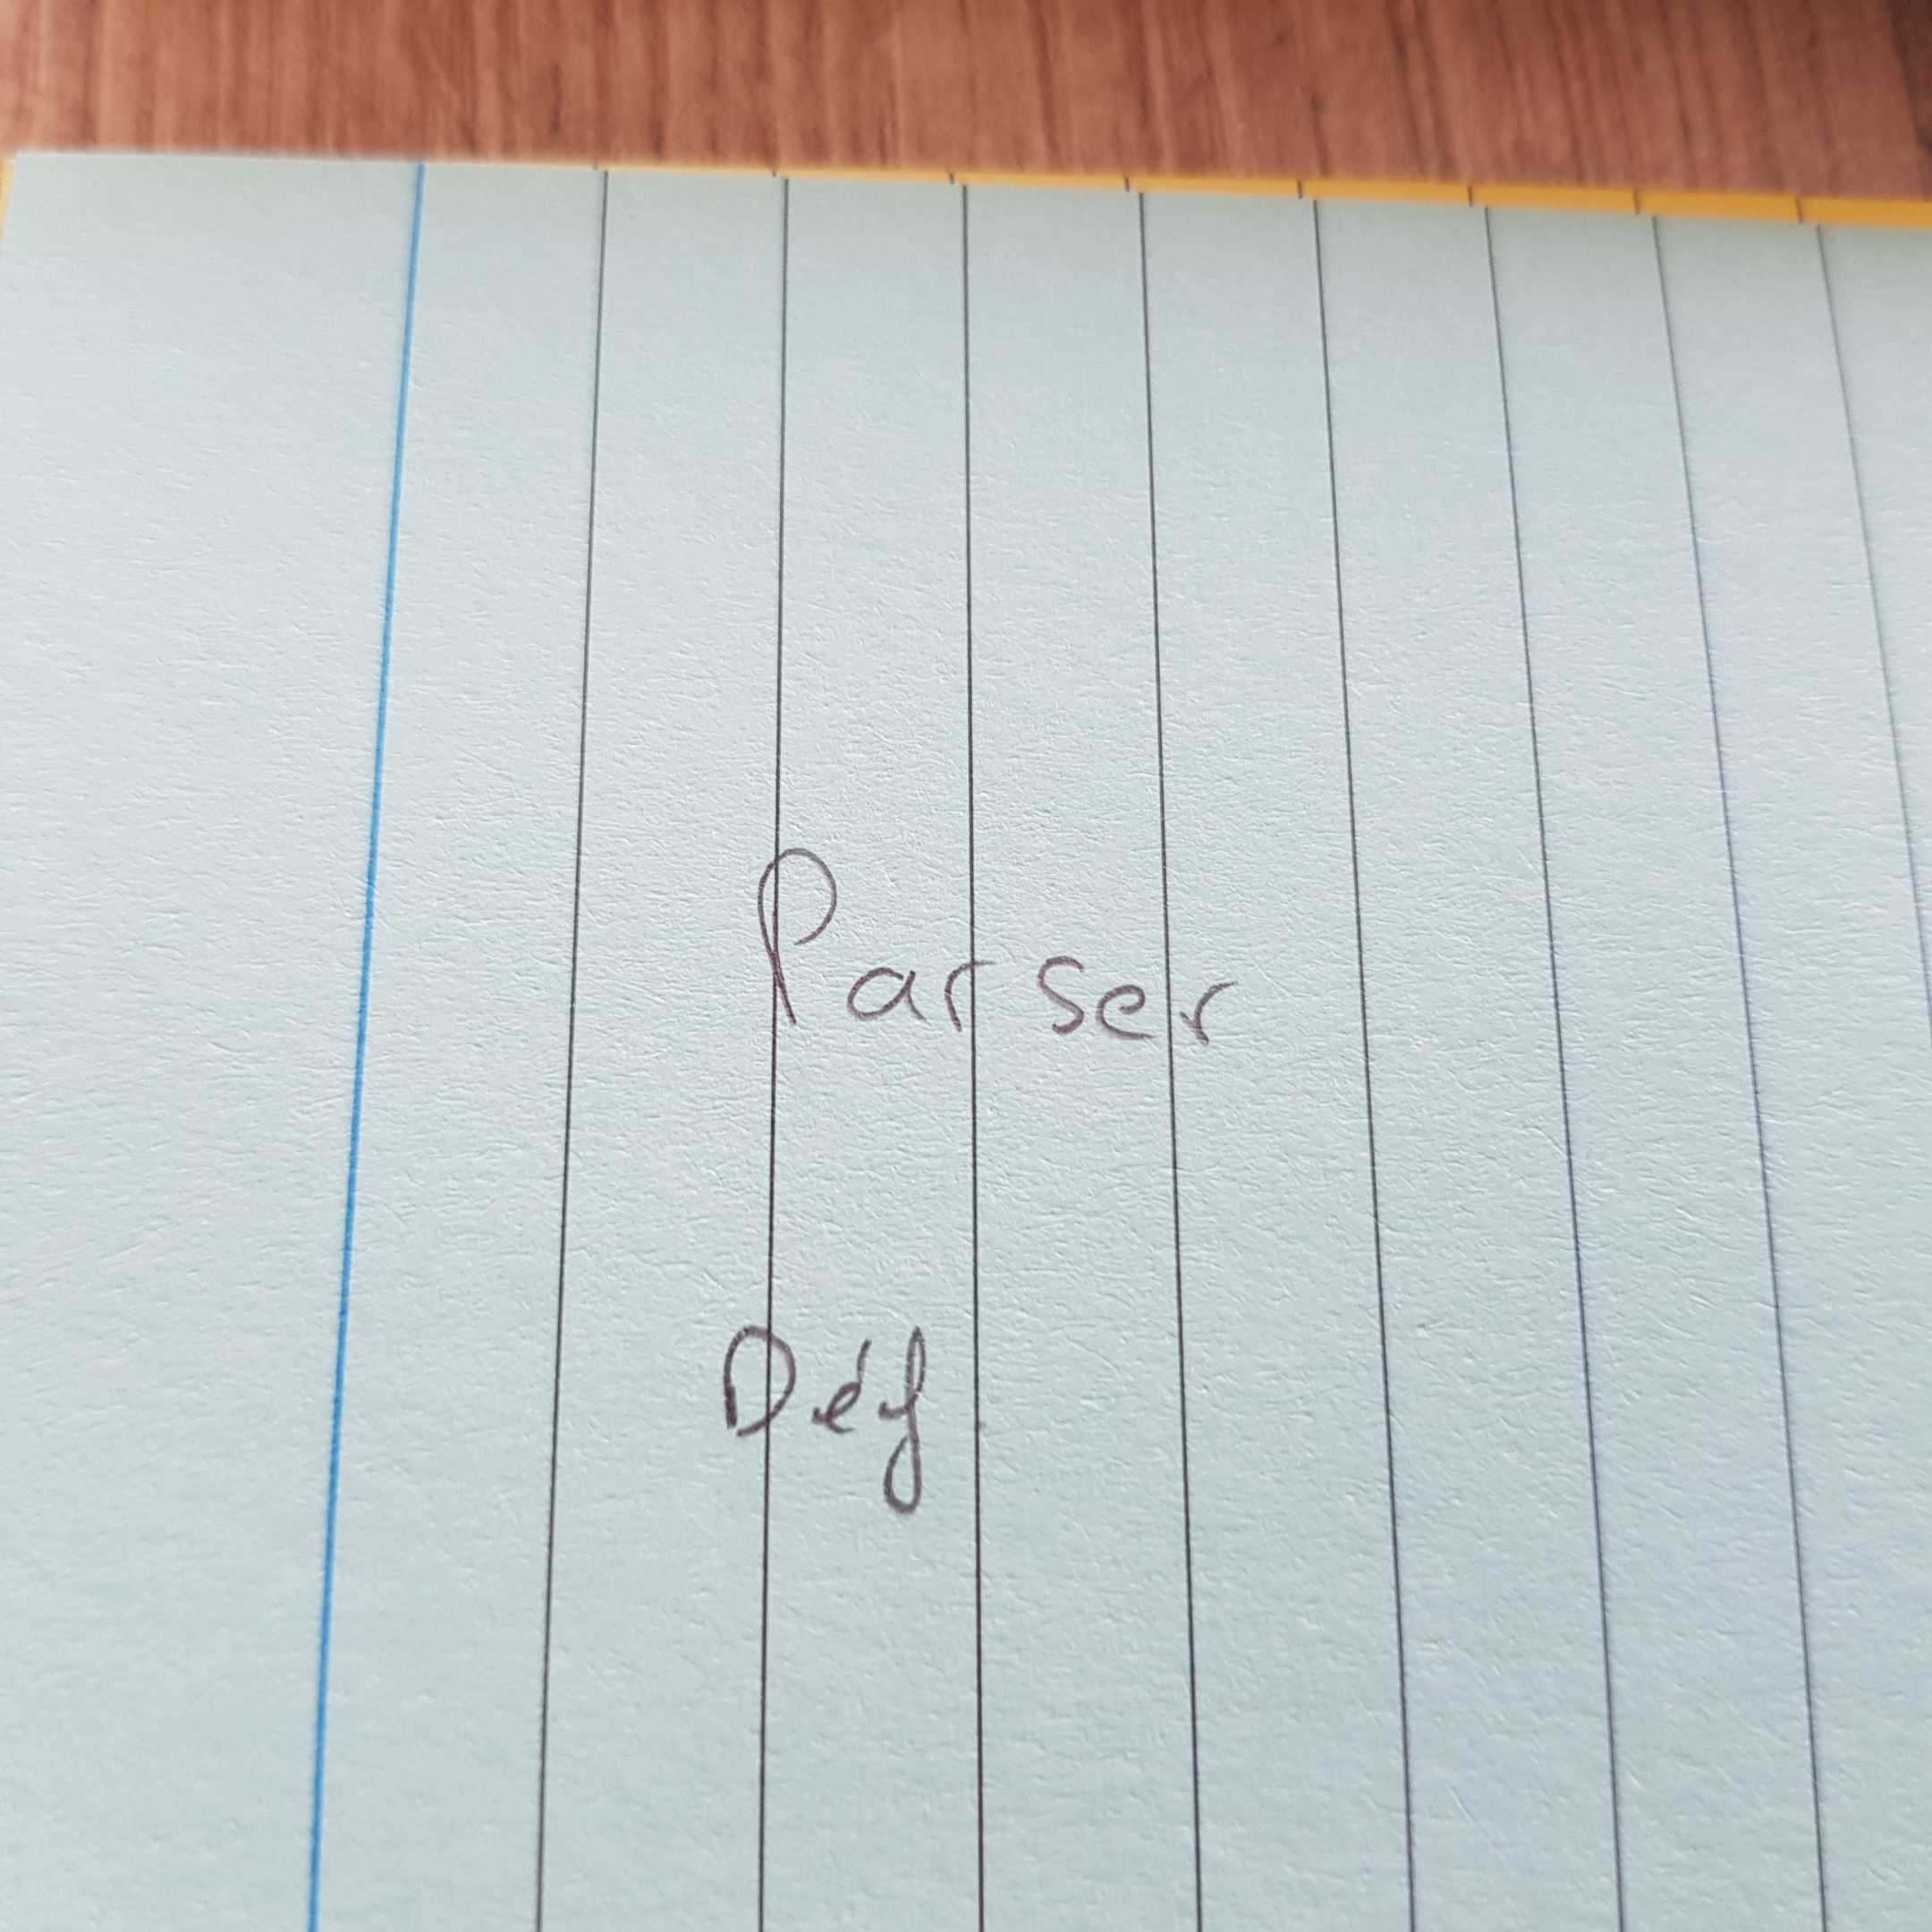 Parser
Déf